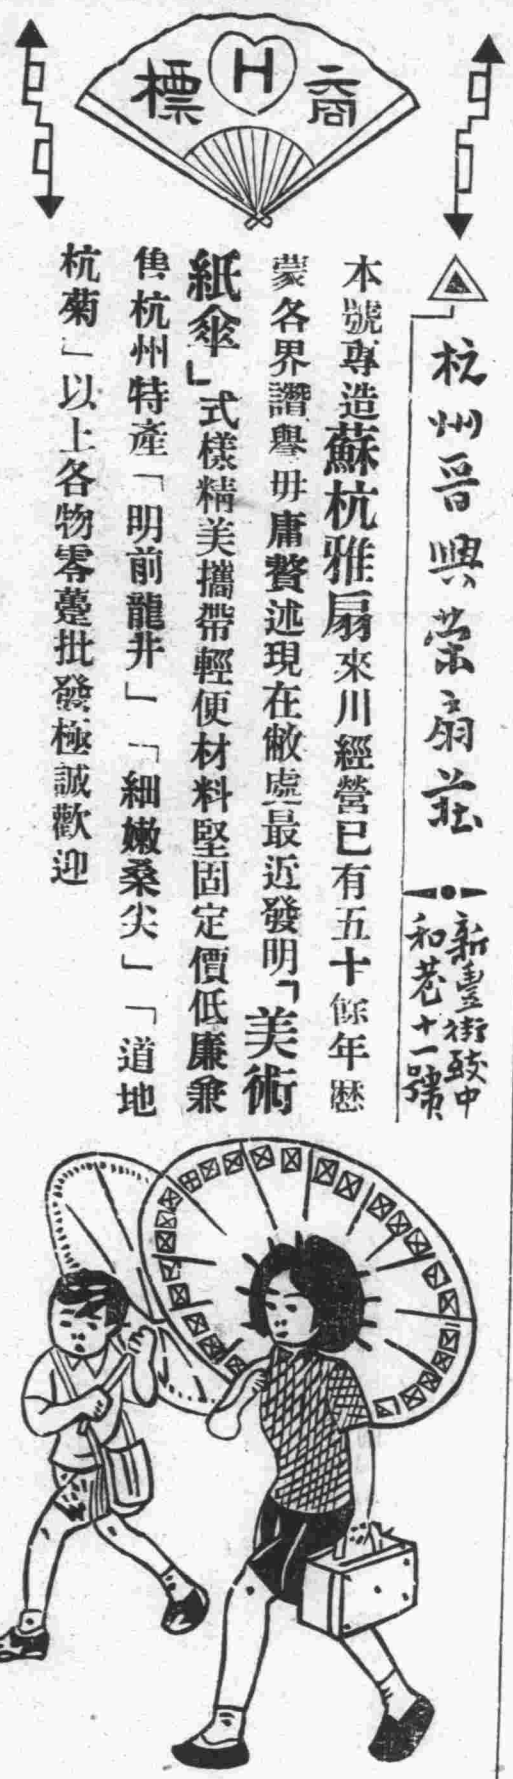 商 H 標
杭州晋興荣扇莊
新豐街致中
和巷十一號
本號專造蘇杭雅扇來川經營已有五十餘年歷
蒙各界讚譽毋庸贅述現在敝處最近發明「美術
紙傘」式樣精美攜帶輕便材料堅固定價低廉兼
售杭州特產「明前龍井」「細嫩桑尖」「道地
杭菊」以上各物零躉批發極誠歡迎